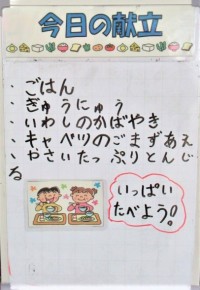 今日の献立
・ごはん
・ぎゅうにゅう
・いわしのかばやき
・キャベツのごまずあえ
・やさいたっぷりとんじ
る
いっぱい
たべよう!